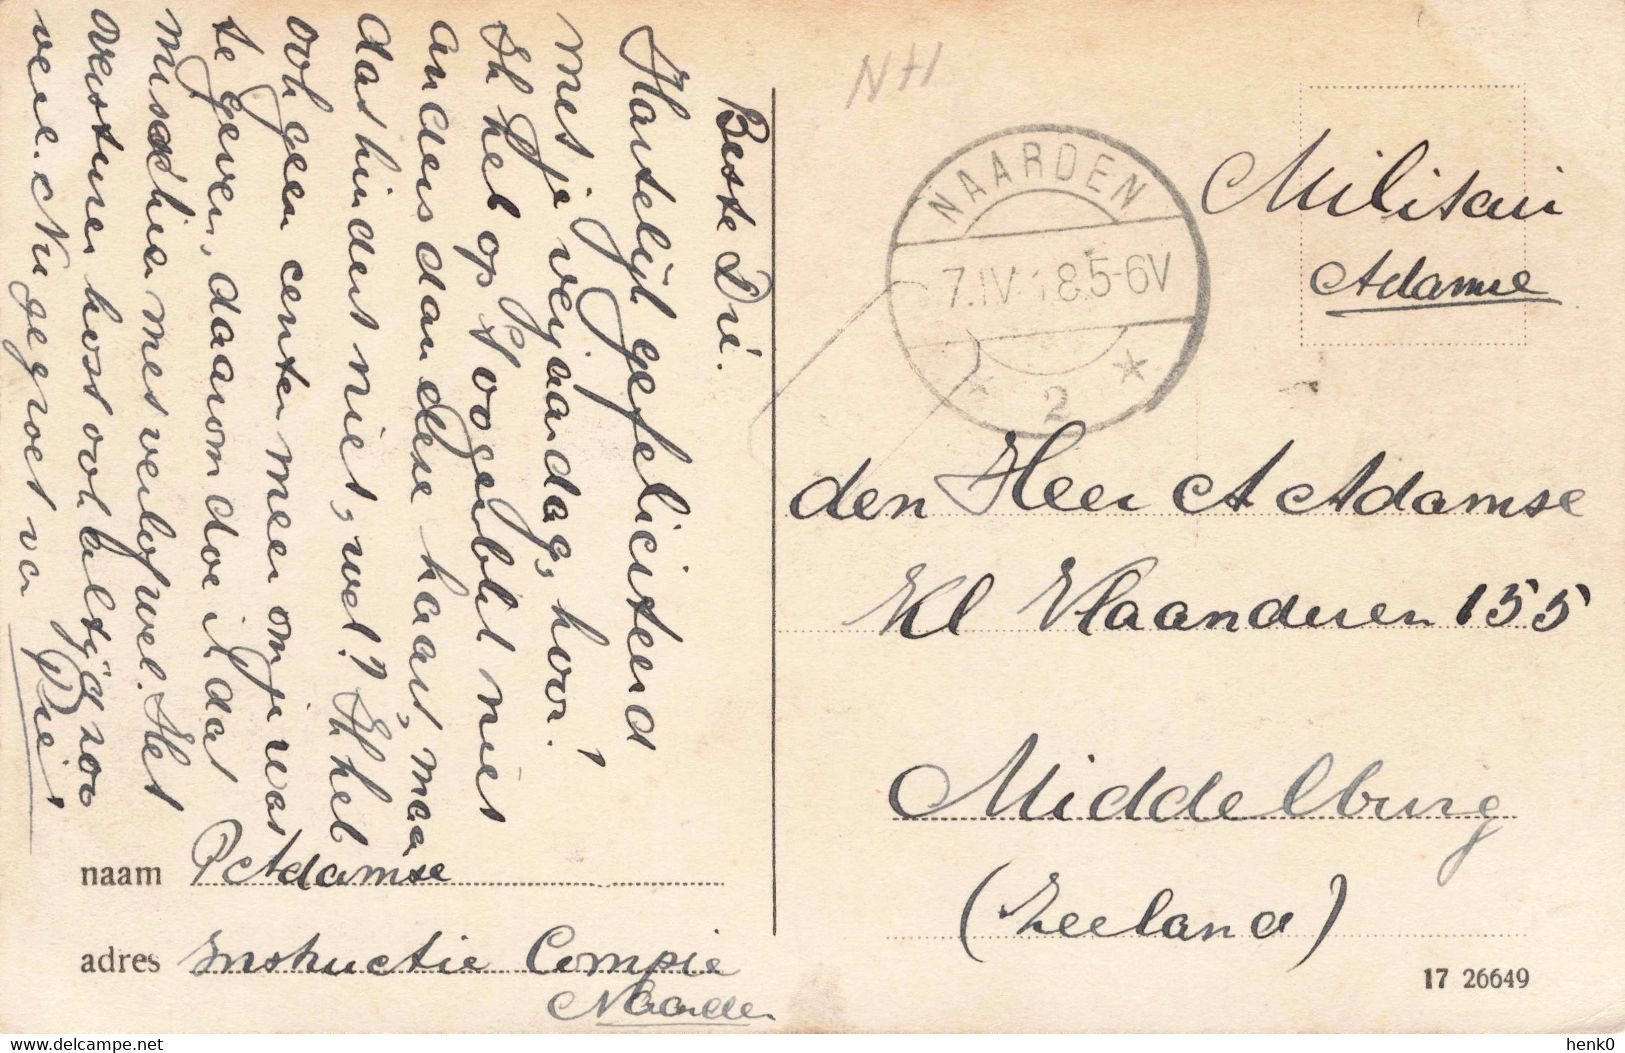 Beste Dré.
Hartelijk gefeliciteerd
met je verjaardag, hoor!
Ik heb op 't oogenblik niet
anders dan deze kaart, maa
dat hindert niet, wel? Ik heb
ook geen centen meer om je wat
te geven, daarom doe ik dat
misschien met verlof wel. Het
versturen kost ook altijd zoo
veel. Nu gegroet va
Piet
naam P Adamse
adres Instructie Compie
Naarden
NH
NAARDEN
7.IV. 18.5-6V
2
Militair
Adamse
den Heer A Adamse
Kl Vlaanderen 155
Middelburg
(Zeeland)
17 26649
delcampe.net
henk0